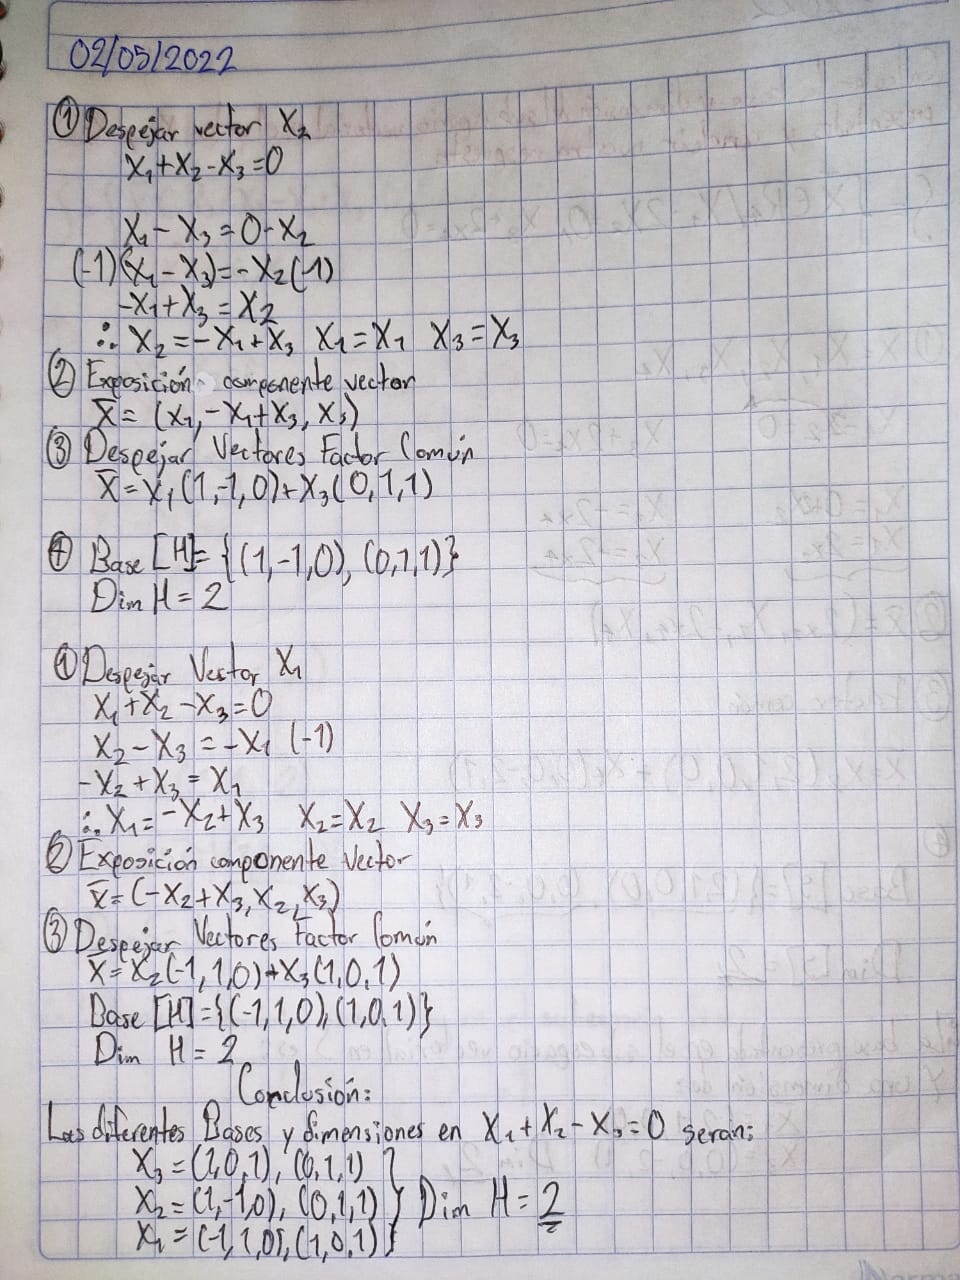 02/05/2022
① Despejar vector X₂
X₁+X₂-X₃=0
X₁-X₃=0-X₂
(-1)(X₁-X₃)=-X₂(-1)
-X₁+X₃=X₂
∴ X₂=-X₁+X₃ X₁=X₁ X₃=X₃
② Exposición componente vector
X̄=(X₁,-X₁+X₃,X₃)
③ Despejar Vectores Factor Común
X̄=X₁(1,-1,0)+X₃(0,1,1)
④ Base [H]={(1,-1,0),(0,1,1)}
Dim H=2
① Despejar Vector X₁
X₁+X₂-X₃=0
X₂-X₃=-X₁(-1)
-X₂+X₃=X₁
∴ X₁=-X₂+X₃ X₂=X₂ X₃=X₃
② Exposición componente Vector
X̄=(-X₂+X₃,X₂,X₃)
③ Despejar Vectores Factor Común
X̄=X₂(-1,1,0)+X₃(1,0,1)
Base [H]={(-1,1,0),(1,0,1)}
Dim H=2
Conclusión:
Las diferentes Bases y dimensiones en X₁+X₂-X₃=0 seran:
X₃=(1,0,1),(0,1,1)
X₂=(1,-1,0),(0,1,1) } Dim H=2
X₁=(-1,1,0),(1,0,1)